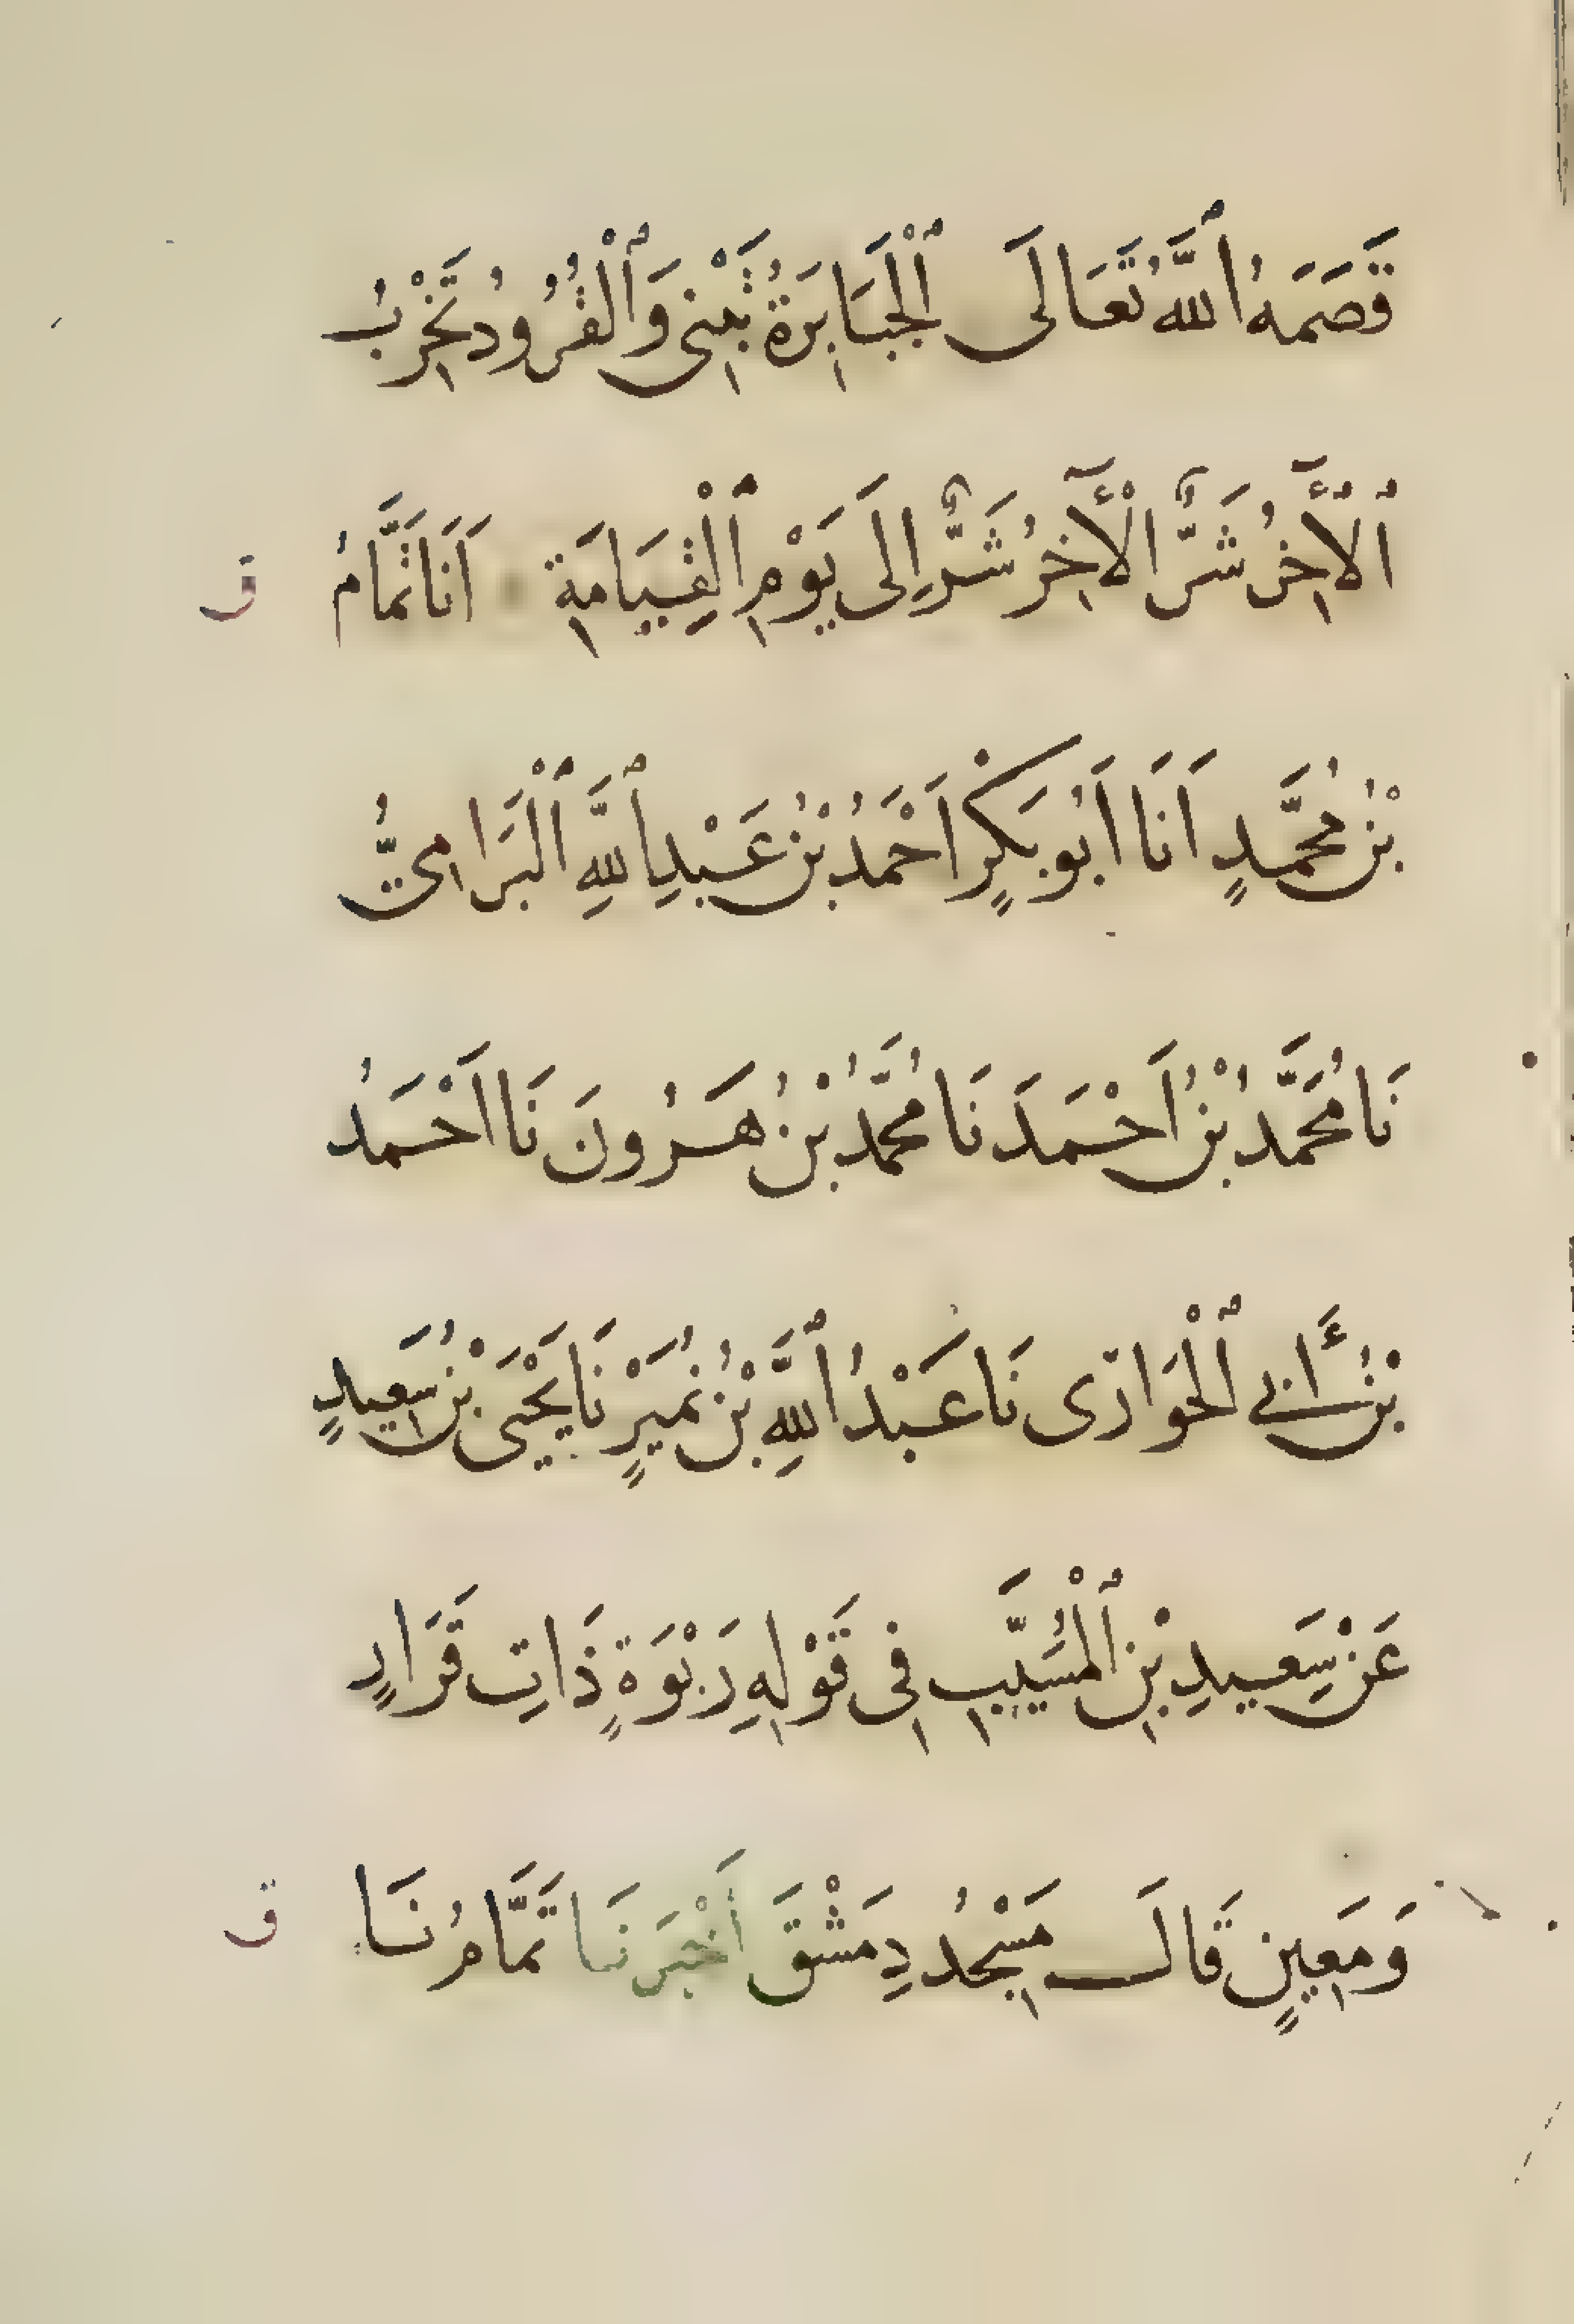 قَصَمَهُ ٱللَّهُ تَعَالَى ٱلْجَبَابِرَةُ تَبْنِي وَٱلْقُرُودُ تَخْرِبُ
ٱلْأٓخِرُ شَرٌّ الْأٓخِرُ شَرٌّ إِلَى يَوْمِ ٱلْقِيَامَةِ اَنَا تَمَّامُ ق
بْنُ مُحَمَّدٍ اَنَا اَبُو بَكْرٍ اَحْمَدُ بْنُ عَبْدِ ٱللَّهِ ٱلْبَرَامِيُّ
نَا مُحَمَّدُ بْنُ اَحْمَدَ نَا مُحَمَّدُ بْنُ هَرُونَ نَا اَحْمَدُ
بْنُ أَبِي ٱلْحَوَارَى نَا عَبْدُ ٱللَّهِ بْنُ نُمَيْرٍ نَا يَحْيَى بْنُ سَعِيدٍ
عَنْ سَعِيدِ بْنِ ٱلْمُسَيَّبِ فِى قَوْلِهِ رَبْوَةٍ ذَاتِ قَرَارٍ
وَمَعِينٍ قَالَ مَسْجُدُ دِمَشْقَ أَخْبَرَنَا تَمَّامُ نَا ق